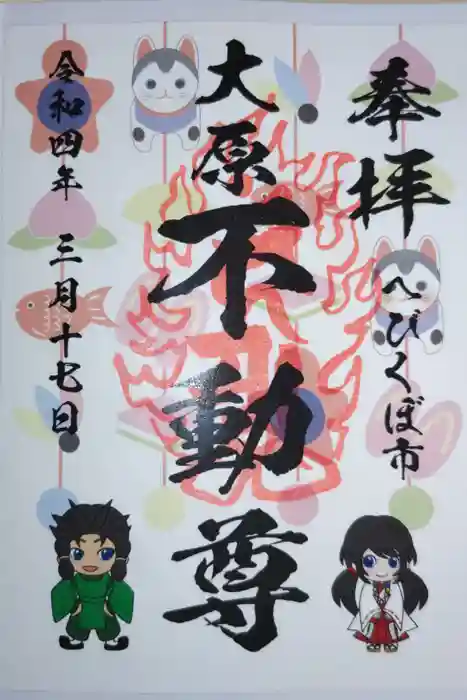 奉拝
へびくぼ市
大原
不動尊
令和四年
三月十七日